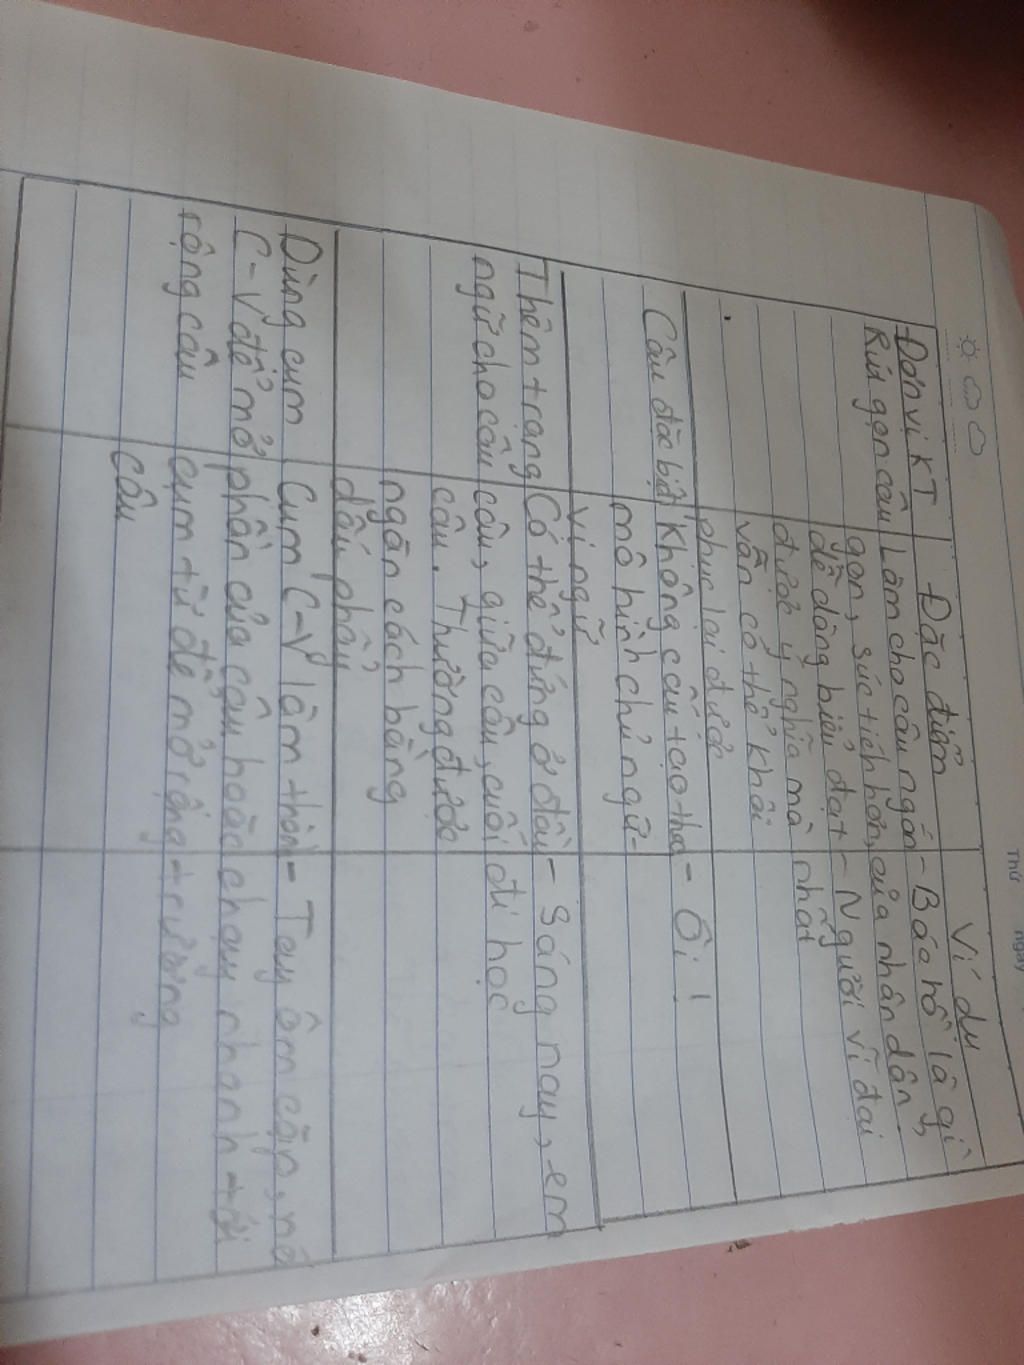 Thứ ngày
Đơn vị KT Đặc điểm Ví dụ
Rút gọn câu Làm cho câu ngắn - Bác hồ là gì
gọn, súc tích hơn, của nhân dân,
dễ dàng biểu đạt - Người vĩ đại
được ý nghĩa mà nhất
vẫn có thể khôi
phục lại được
Câu đặc biệt Không cấu tạo theo - Ôi!
mô hình chủ ngữ -
vị ngữ
Thêm trạng Có thể đứng ở đầu - Sáng nay, em
ngữ cho câu câu, giữa câu, cuối đi học
câu. Thường được
ngăn cách bằng
dấu phẩy
Dùng cụm Cụm C-V làm thành - Tay ôm cặp, nó
C-V để mở phần của câu hoặc chạy nhanh tới
rộng câu cụm từ để mở rộng trường
câu